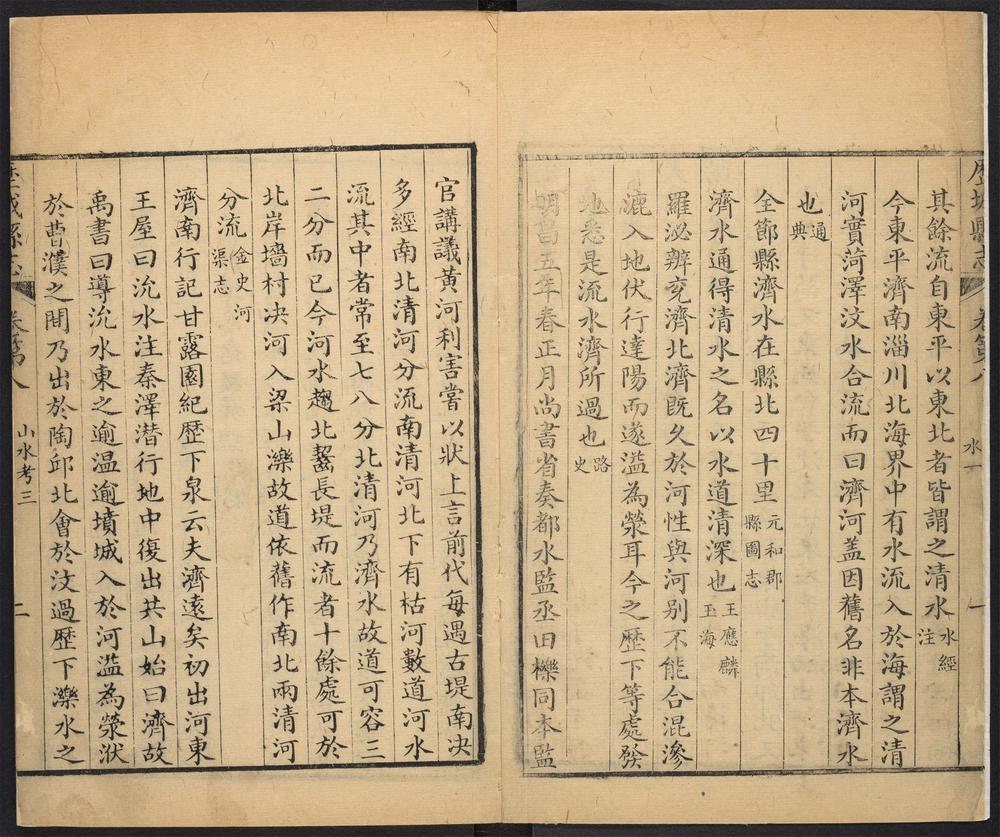 歷城縣志 卷第八 水一 一
其餘流自東平以東北者皆謂之清水水經注
今東平濟南淄川北海界中有水流入於海謂之清
河實菏澤汶水合流而曰濟河盖因舊名非本濟水
也通典
全節縣濟水在縣北四十里元和郡縣圖志
濟水通得清水之名以水道清深也王應麟玉海
羅泌辨兖濟北濟既久於河性與河别不能合混滲
漉入地伏行達陽而遂溢為滎耳今之歷下等處發
地悉是流水濟所過也路史
明昌五年春正月尚書省奏都水監丞田櫟同本監
官講議黃河利害嘗以狀上言前代每遇古堤南決
多經南北清河分流南清河北下有枯河數道河水
流其中者常至七八分北清河乃濟水故道可容三
二分而已今河水趨北齧長堤而流者十餘處可於
北岸墻村决河入梁山濼故道依舊作南北兩清河
分流金史河渠志
濟南行記甘露園紀歷下泉云夫濟遠矣初出河東
王屋曰沇水注秦澤潜行地中復出共山始曰濟故
禹書曰導沇水東之逾温逾墳城入於河溢為滎洑
於曹濮之間乃出於陶邱北會於汶過歷下濼水之
歷城縣志 卷第八 山水考三 二